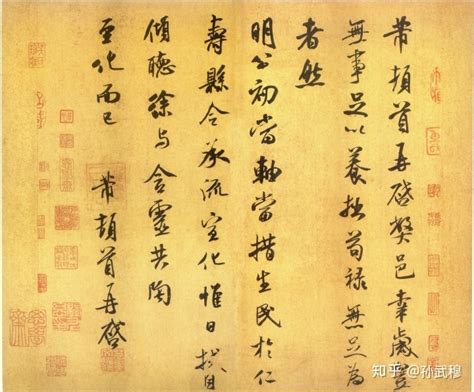 芾頓首再啓弊邑幸歲豐
無事足以養拙苟禄無足為
者然
明公初當軸當措生民於仁
壽縣令承流宣化惟日拭目
傾聽徐与含靈共陶
至化而已
芾頓首再啓
知乎 @孙武穆